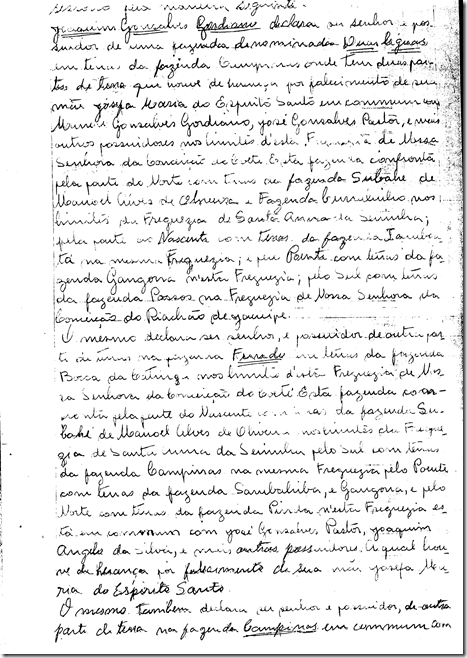 pela maneira seguinte.
Joaquim Gonsalves Gordiano declara ser senhor e pos-
suidor de uma fazenda denominada Duas lagoas
em terras da fazenda Campinas onde tem duas par-
tes de terra que houve de herança por falecimento de sua
mãe Josefa Maria do Espirito Santo em commum com
Manoel Gonsalves Gordiano, José Gonsalves Pastor, e mais
outros possuidores nos limites d'esta Freguezia de Nossa
Senhora da Conceição do Coité. Esta fazenda confronta
pela parte do Norte com terras da fazenda Subahé de
Manoel Alves de Oliveira e Fazenda nos
limites da Freguezia de Santa Anna da Serrinha;
pela parte do Nascente com terras da fazenda
na mesma Freguezia; e pelo Poente com terras da fa-
zenda Gangorra n'esta Freguezia; pelo Sul com terras
da fazenda Passos na Freguezia de Nossa Senhora da
Conceição do Riachão de Jacuipe.
O mesmo declara ser senhor, e possuidor de outra par-
te de terras na fazenda em terras da fazenda
Bocca da Catinga nos limites d'esta Freguezia de Nos-
sa Senhora da Conceição do Coité Esta fazenda co
pela parte do Nascente com terras da fazenda Su-
bahé de Manoel Alves de Oliveira nos limites da Fregue-
zia de Santa Anna da Serrinha pelo Sul com terras
da fazenda Campinas na mesma Freguezia pelo Poente
com terras da fazenda Sambahiba, e Gangorra, e pelo
Norte com terras da fazenda Pinda n'esta Freguezia es-
tá em commum com José Gonsalves Pastor, Joaquim
Angelo da Silva, e mais outros possuidores. A qual hou-
ve de herança por falecimento de sua mãe Josefa Ma-
ria do Espirito Santo.
O mesmo tambem declara ser senhor e possuidor, de outra
parte de terra na fazenda Campinas em commum com